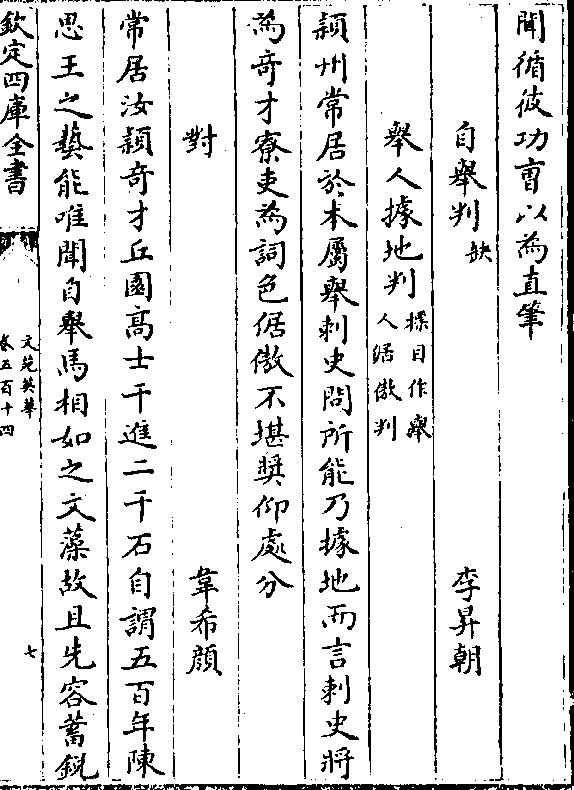 聞循彼功曺以為直筆
自舉判缺 李昇朝
舉人據地判標目作舉人倨傲判
頴州常居於本屬舉刺史問所能乃據地而言刺史將
為奇才寮吏為詞色倨傲不堪奬仰處分
對 韋希顔
常居汝頴奇才丘園髙士干進二千石自謂五百年陳
思王之藝能唯聞自舉馬相如之文藻故且先容蓄銳
欽定四庫全書
文苑英華
卷五百十四
七